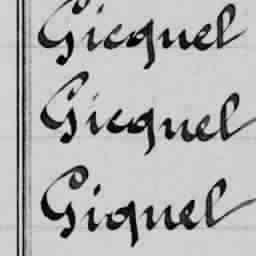 Gicquel
Gicquel
Giquel